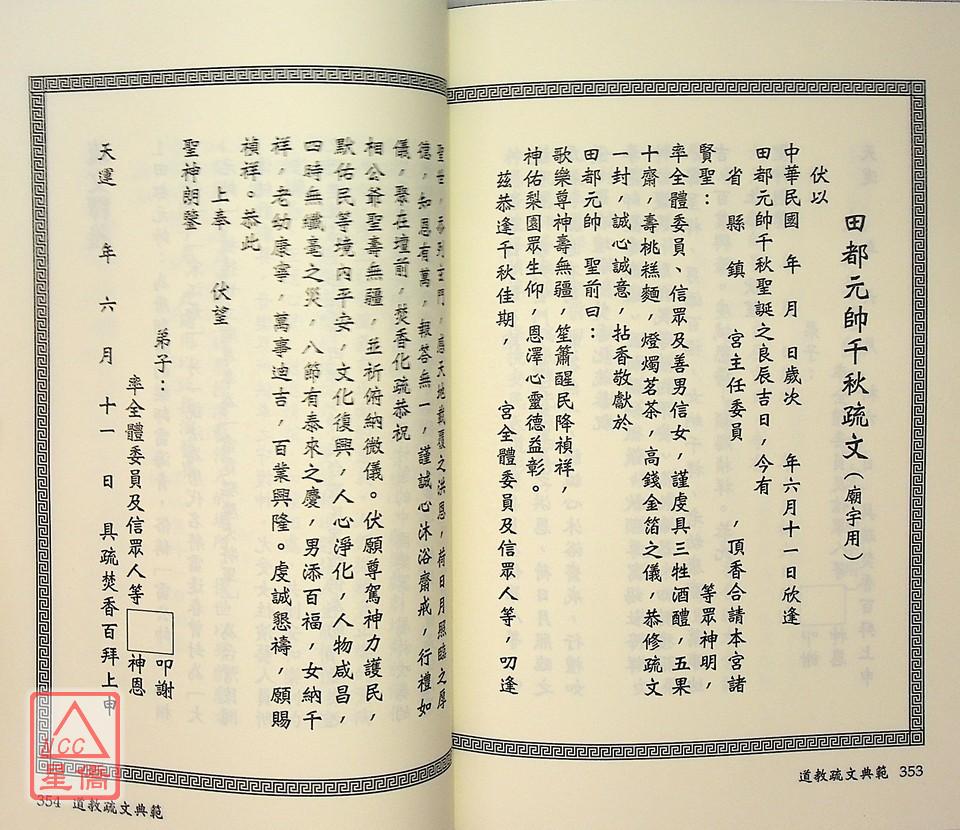 田都元帥千秋疏文(廟宇用)
伏以
中華民國 年 月 日歲次 年六月十一日欣逢
田都元帥千秋聖誕之良辰吉日,今有
省 縣 鎮 宮主任委員 ,頂香合請本宮諸
賢聖: 等眾神明,
率全體委員、信眾及善男信女,謹虔具三牲酒醴,五果
十齋,壽桃糕麵,燈燭茗茶,高錢金箔之儀,恭修疏文
一封,誠心誠意,拈香敬獻於
田都元帥 聖前曰:
歌樂尊神壽無疆,笙簫醒民降禎祥,
神佑梨園眾生仰,恩澤心靈德益彰。
茲恭逢千秋佳期, 宮全體委員及信眾人等,叨逢
聖世,忝列玄門,感天地載覆之洪恩,荷日月照臨之厚
德,知恩有萬,報答無一,謹誠心沐浴齋戒,行禮如
儀,聚在壇前,焚香化疏恭祝
相公爺聖壽無疆,並祈俯納微儀。伏願尊駕神力護民,
默佑民等境內平安,文化復興,人心淨化,人物咸昌,
四時無纖毫之災,八節有泰來之慶,男添百福,女納千
祥,老幼康寧,萬事迪吉,百業興隆。虔誠懇禱,願賜
禎祥。恭此
上奉 伏望
聖神朗鑒
弟子: 叩謝
率全體委員及信眾人等 神恩
天運 年 六 月 十一 日 具疏焚香百拜上申
道教疏文典範 353
354 道教疏文典範
NCC
星僑